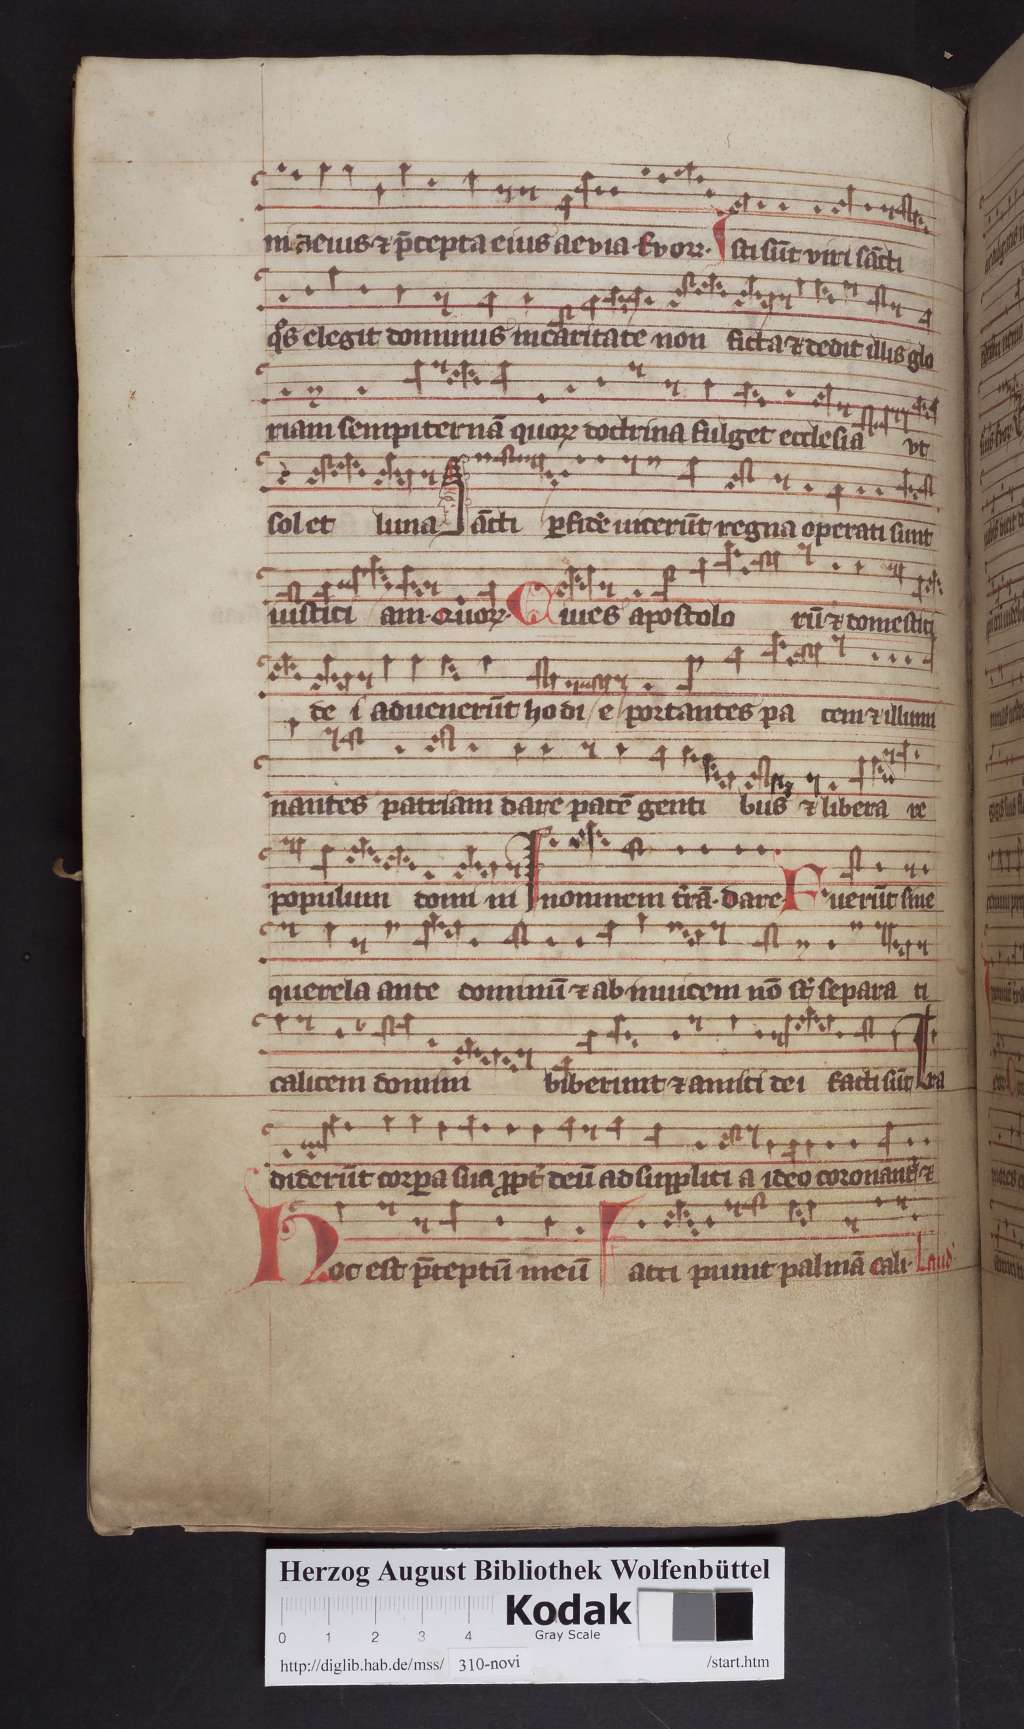 nia eius ⁊ p̄cepta eius aevia. Evorꝝ. Isti sūt viri sāc̄ti
qͦs elegit dominus in caritate non ficta ⁊ dedit illis glo
riam sempiternā quorꝝ doctrina fulget ecclesia vt
sol et luna Sācti ꝑ fidē uicerūt regna operati sunt
iusticiam. Quorꝝ. Ciues apostolorū ⁊ domestici
dei aduenerūt hodie portantes pacem ⁊ illumi
nantes patriam dare pacē gentibus ⁊ liberare
populum domini In omnem t̄rā. dare Fuerūt sine
querela ante dominū ⁊ ab inuicem nō st̄ separati
calicem domini biberunt ⁊ amici dei facti sūt Tra
diderūt corꝑa sua ꝓpt̄ deū ad supplicia ideo coronant̄ ⁊
Hoc est p̄ceptū meū accipiunt palmā Cali. Laud'
Herzog August Bibliothek Wolfenbüttel
Kodak
Gray Scale
0 1 2 3 4
http://diglib.hab.de/mss/ 310-novi /start.htm